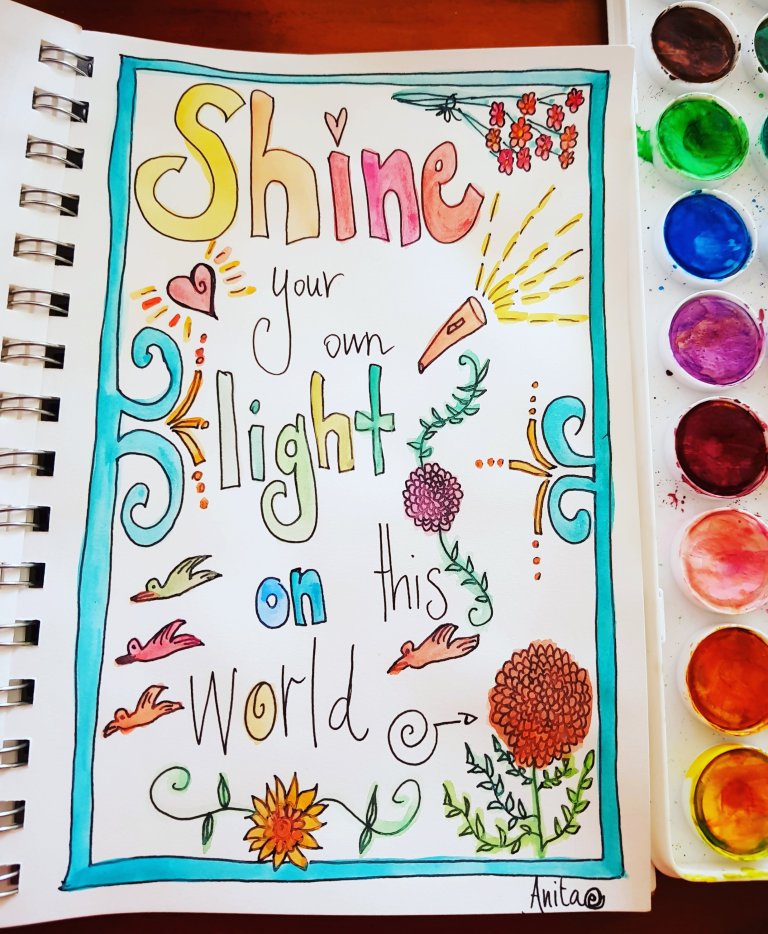 Shine
your
own
light
on this
World
Anita